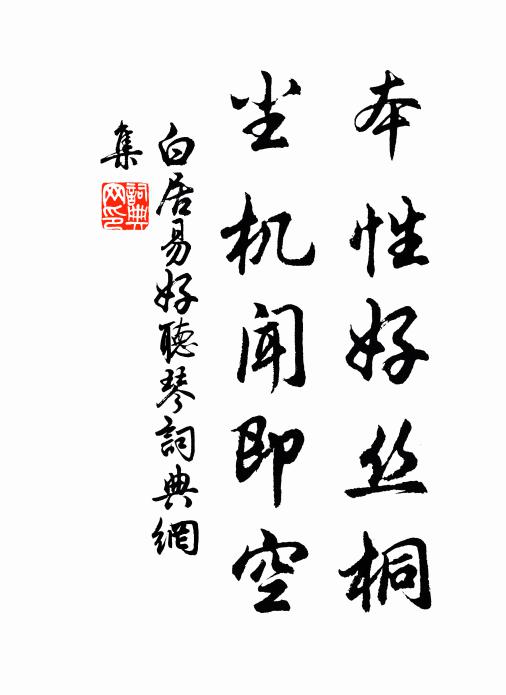 本性好丝桐
尘机闻即空
白居易好聽琴詞典網
集
詞典网印